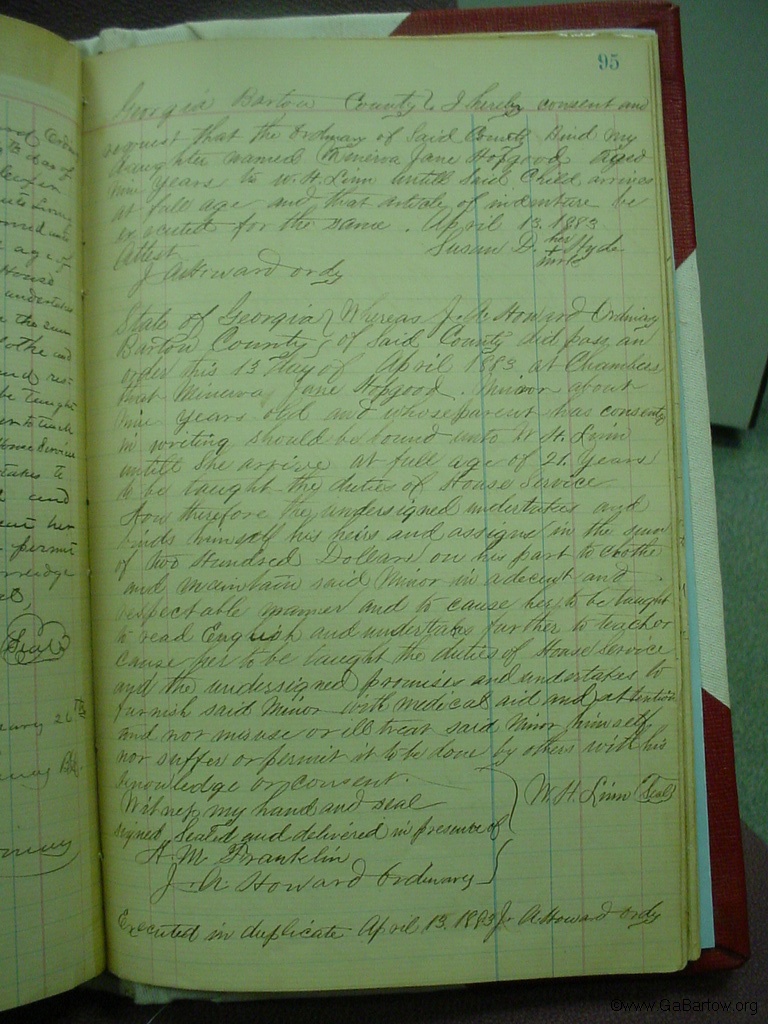 95
Georgia Bartow County } I hereby consent and
request that the Ordinary of Said County Bind my
daughter named Minerva Jane Hopgood aged
nine years to W. H. Linn untill Said Child arrives
at full age and that article of indenture be
executed for the same. April 13. 1883
Attest Susan D. her Hyde
x mark
J A Howard ordy
State of Georgia } Whereas J. A Howard Ordinary
Bartow County } of Said County did pass an
order this 13 day of April 1883 at Chambers
that Minerva Jane Hopgood. Minor about
nine years old and whose parent has consented
in writing should be bound unto W H. Linn
untill she arrive at full age of 21. years
to be taught the duties of House Service
Now therefore the undersigned undertakes and
binds himself his heirs and assigns in the sum
of two Hundred Dollars on his part to clothe
and maintain said Minor in a decent and
respectable manner and to cause her to be taught
to read English and undertakes further to teach or
cause her to be taught the duties of House Service
and the undersigned promises and undertakes to
furnish said Minor with medical aid and attention
and nor misuse or ill treat said Minor himself
nor suffer or permit it to be done by others with his
knowledge or consent.
Witness my hand and seal W. H. Linn Seal
signed, Sealed and delivered in presence of
H. M. Franklin
J. A Howard Ordinary
Executed in duplicate April 13. 1883 J. A Howard ordy
©www.GaBartow.org